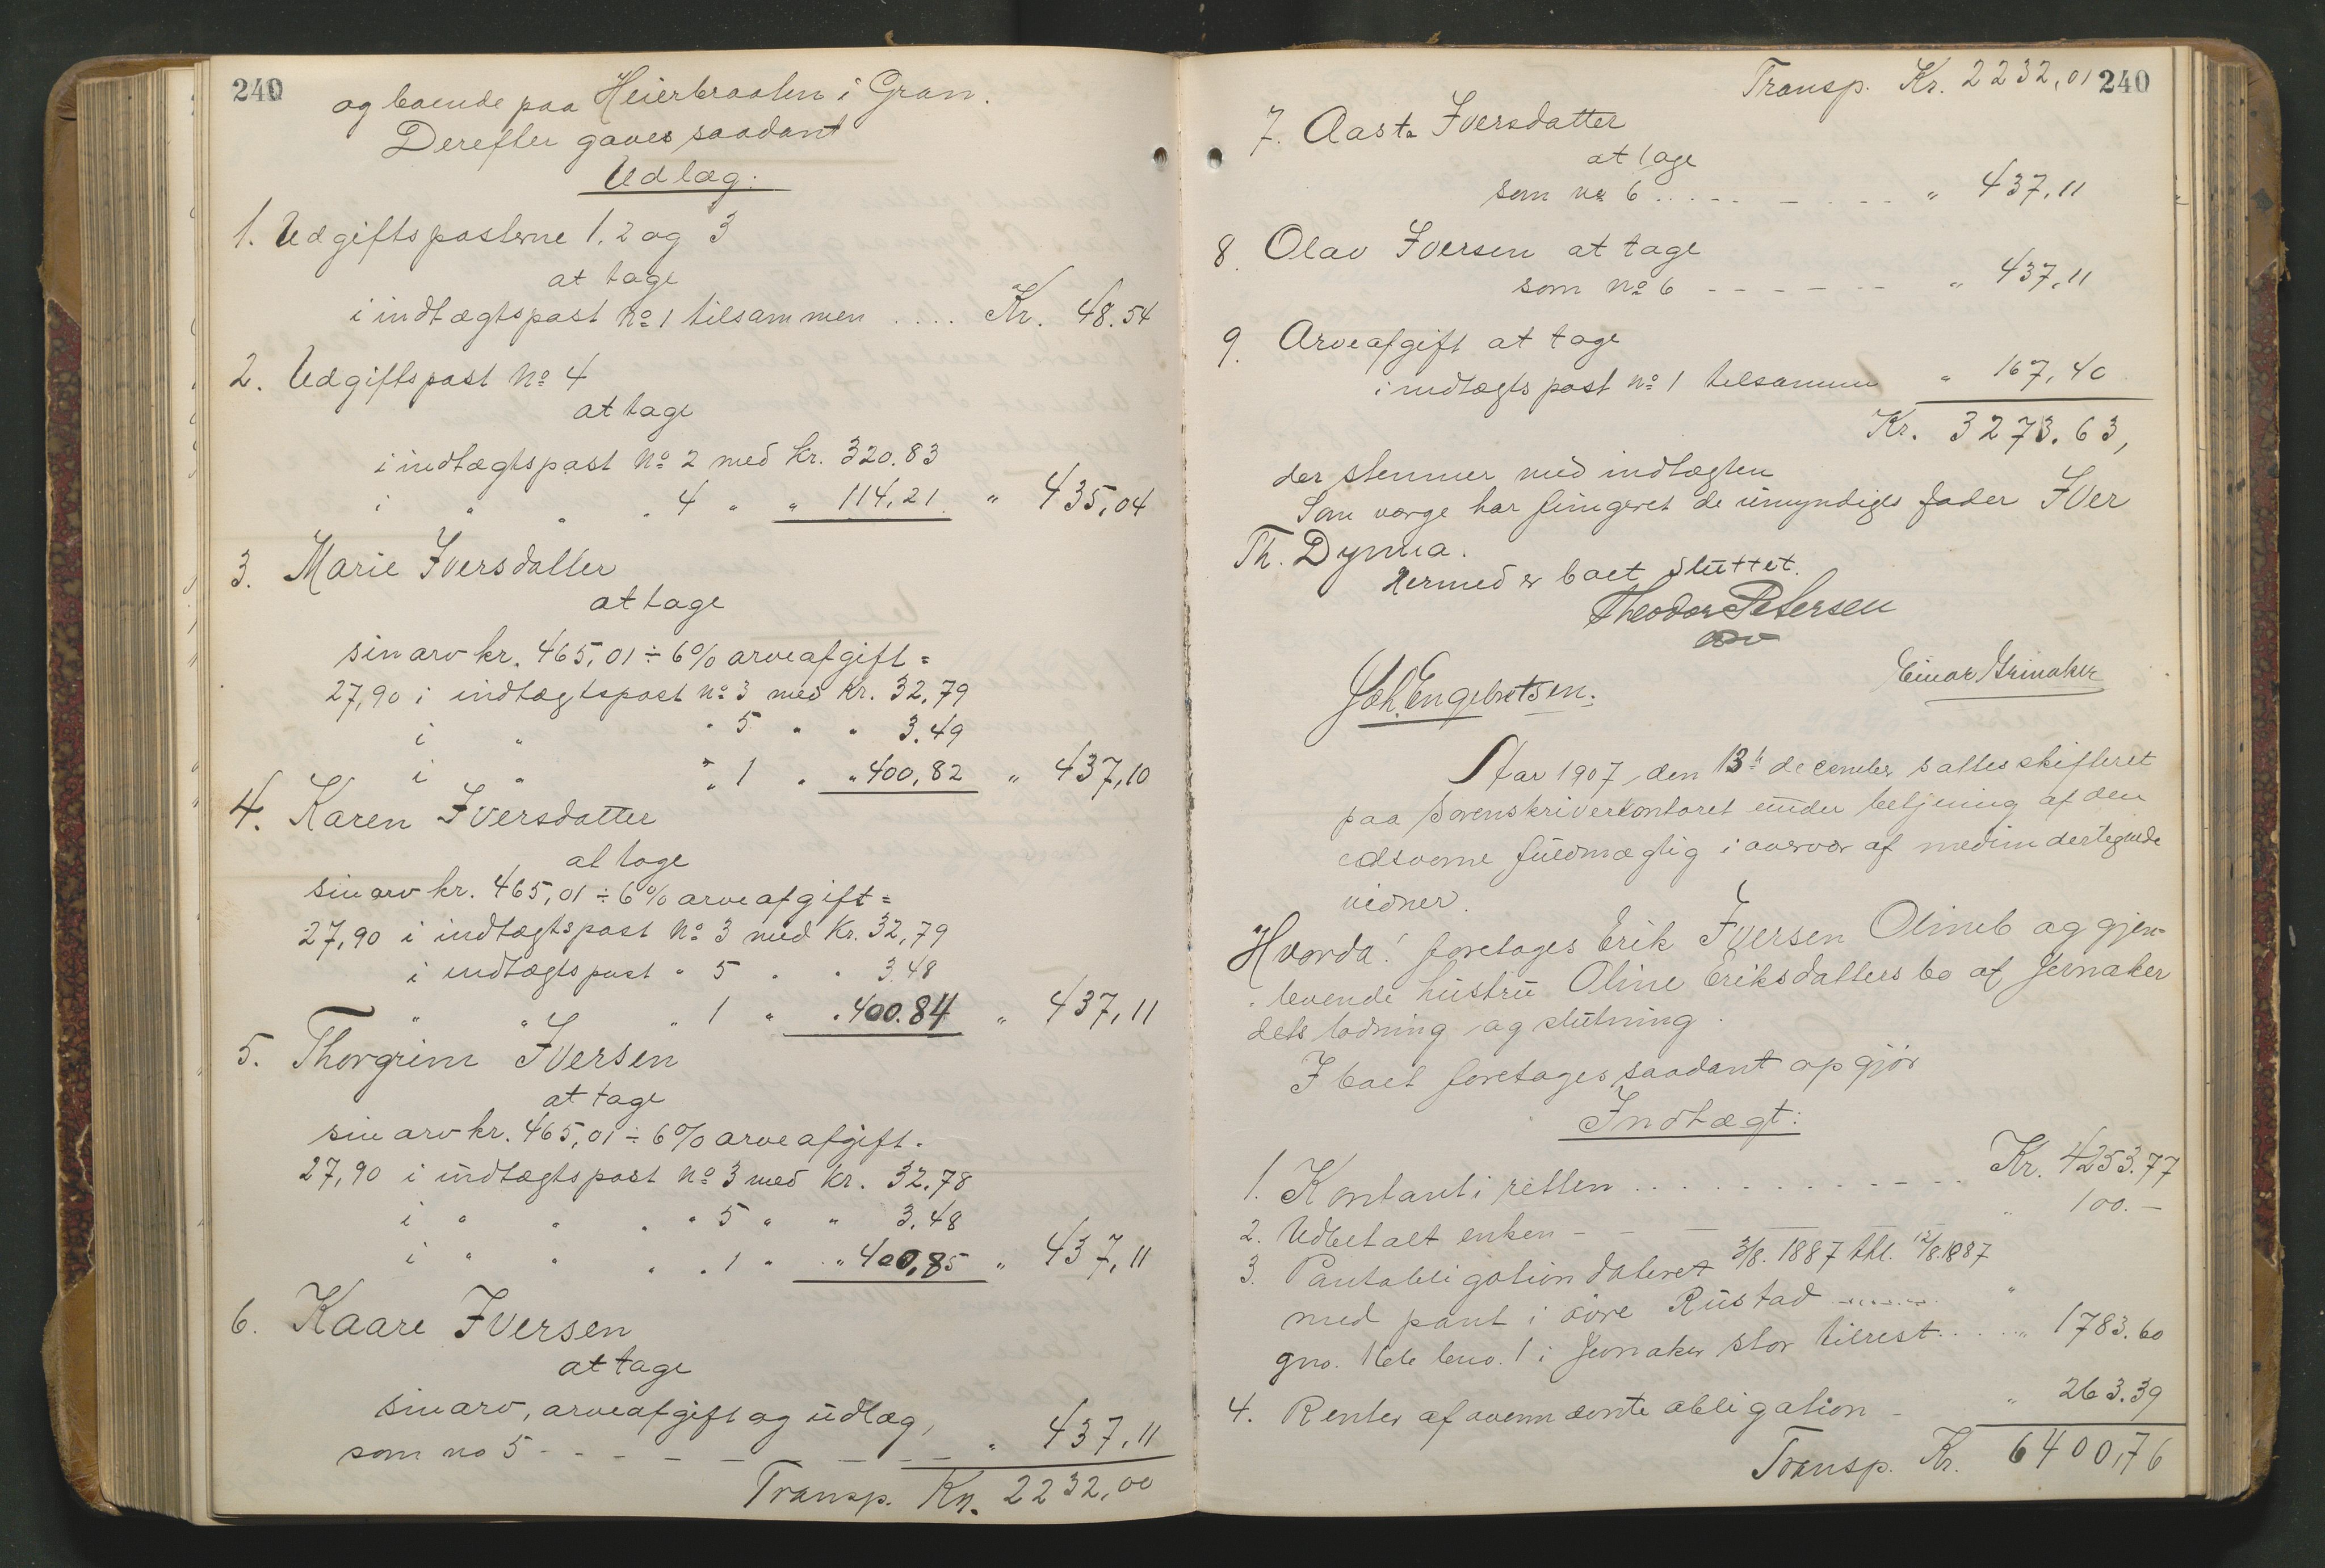 240
og boende paa Heierbraaten i Gran.
Derefter gaves saadant
Udlæg:
1. Udgiftsposterne 1, 2 og 3
at tage
i indtægtspost No 1 tilsammen .... Kr. 48.54
2. Udgiftspost No 4
at tage
i indtægtspost No 2 med kr. 320.83
i " " " 4 " " 114,21 " 435,04
3. Marie Iversdatter
at tage
sin arv kr. 465,01 ÷ 6% arveafgift =
27,90 i indtægtspost No 3 med kr. 32,79
i " " 5 " " 3.49
i " " 1 " " 400,82 " 437,10
4. Karen Iversdatter
at tage
sin arv kr. 465,01 ÷ 6% arveafgift =
27,90 i indtægtspost No 3 med kr. 32,79
i indtægtspost " 5 " " 3.48
" " " 1 " " 400.84 " 437,11
5. Thorgrim Iversen
at tage
sin arv kr. 465,01 ÷ 6% arveafgift =
27,90 i indtægtspost No 3 med kr. 32.78
i " " " " 5 " " 3.48
i " " " " 1 " " 400,85 " 437,11
6. Kaare Iversen
at tage
sin arv, arveafgift og udlæg,
som no 5 - - - - - - - " 437,11
Transp. Kr. 2232,00
Transp. Kr. 2232,01 240
7. Aasta Iversdatter
at tage
som no 6 ..... - . - - " 437,11
8. Olav Iversen at tage
som no 6 - - - - - - " 437,11
9. Arveafgift at tage
i indtægtspost no 1 tilsammen " 167,40
Kr. 3273.63,
der stemmer med indtægten
Som værge har fungeret de umyndiges fader Iver
Th. Dynna.
Hermed er boet sluttet.
Theodor Petersen
Einar Grinaker
Joh. Engebretsen.
Aar 1907, den 13de december sattes skifteret
paa sorenskriverkontoret under betjening af den
edsvorne fuldmægtig i overvær af medundertegnede
vidner.
Hvorda! foretoges Erik Iversen Olimb og gjen-
levende hustru Oline Eriksdatters bo af Jevnaker
dets lodning og slutning.
I boet foretoges saadant opgjør
Indtægt:
1. Kontant i retten . . . . . . . . . . . Kr. 4253.77
2. Udbetalt enken - - - - - " 100.-
3. Pantobligation dateret 3/8. 1887 thl. 12/8.1887
med pant i øvre Rustad ........ "
gno. 16 bno. 1 i Jevnaker stor tilrest.... " 1783.60
4. Renter af ovennævnte obligation - " 263.39
Transp. Kr. 6400,76